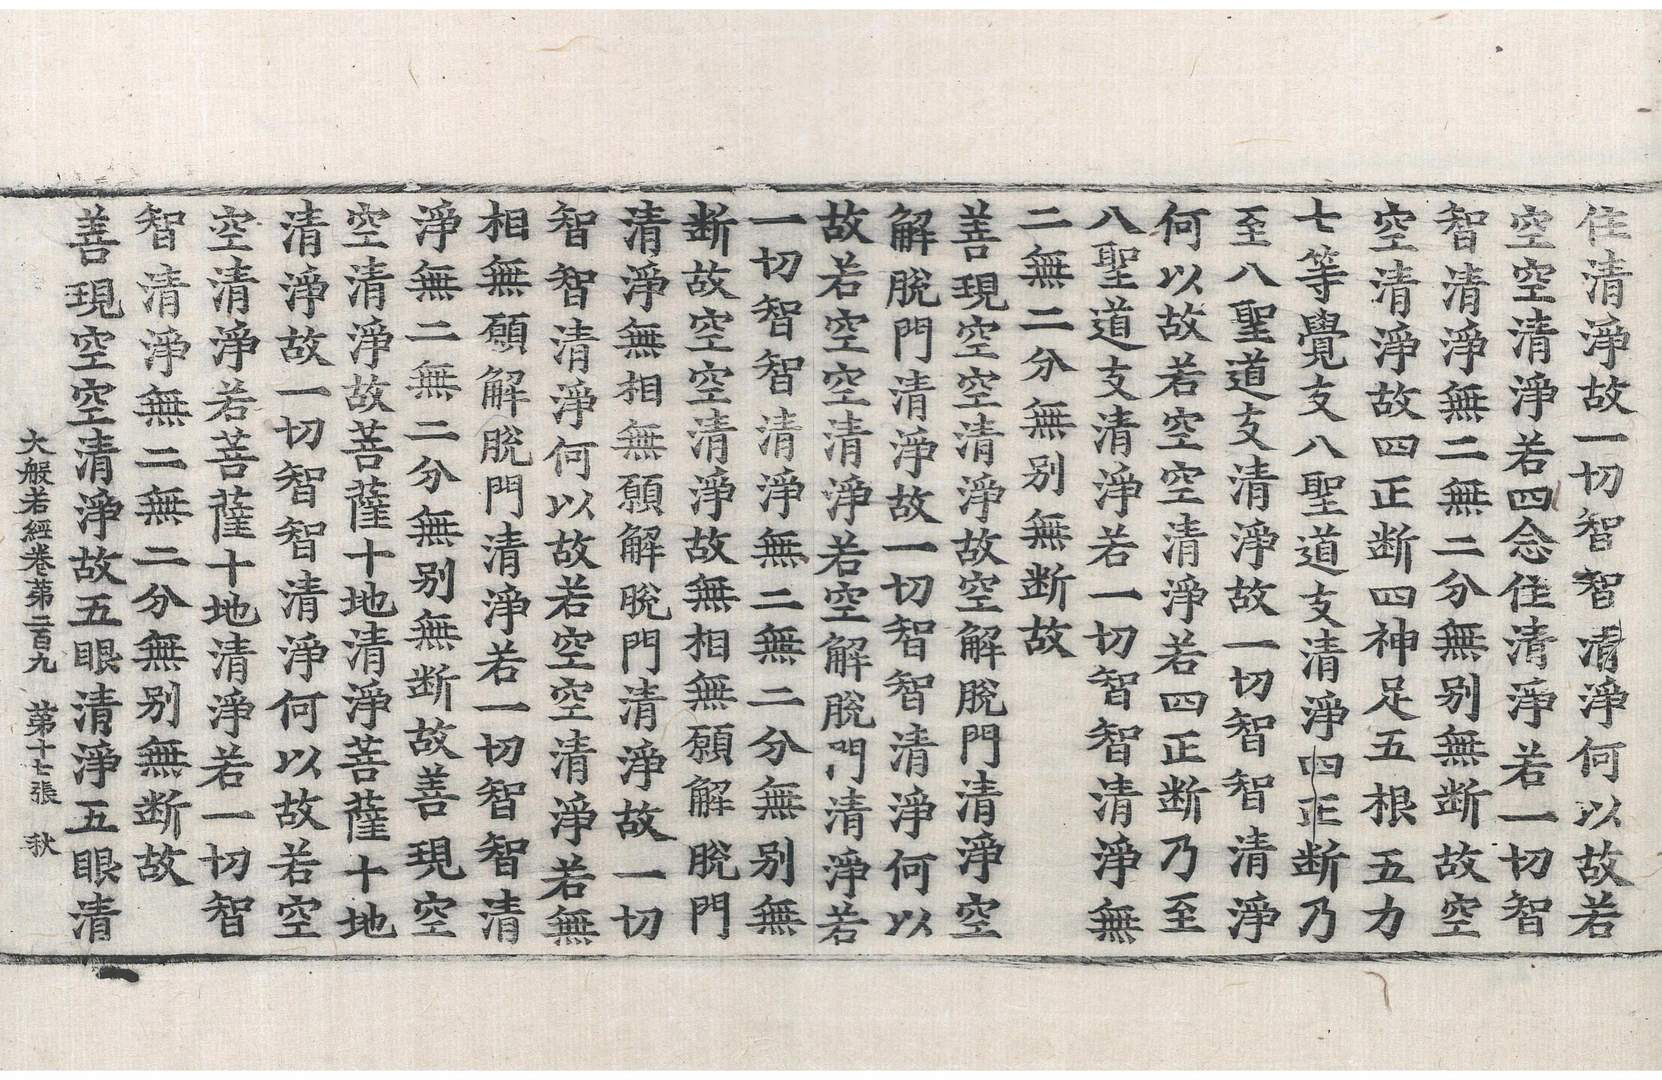 住清淨故一切智智清淨何以故若
空空清淨若四念住清淨若一切智
智清淨無二無二分無别無断故空
空清淨故四正断四神足五根五力
七等覺支八聖道支清淨四正断乃
至八聖道支清淨故一切智智清淨
何以故若空空清淨若四正断乃至
八聖道支清淨若一切智智清淨無
二無二分無别無断故
善現空空清淨故空解脫門清淨空
解脫門清淨故一切智智清淨何以
故若空空清淨若空解脫門清淨若
一切智智清淨無二無二分無别無
断故空空清淨故無相無願解脫門
清淨無相無願解脫門清淨故一切
智智清淨何以故若空空清淨若無
相無願解脫門清淨若一切智智清
淨無二無二分無别無断故善現空
空清淨故菩薩十地清淨菩薩十地
清淨故一切智智清淨何以故若空
空清淨若菩薩十地清淨若一切智
智清淨無二無二分無别無断故
善現空空清淨故五眼清淨五眼清
大般若經卷第二百九 第十七張 秋